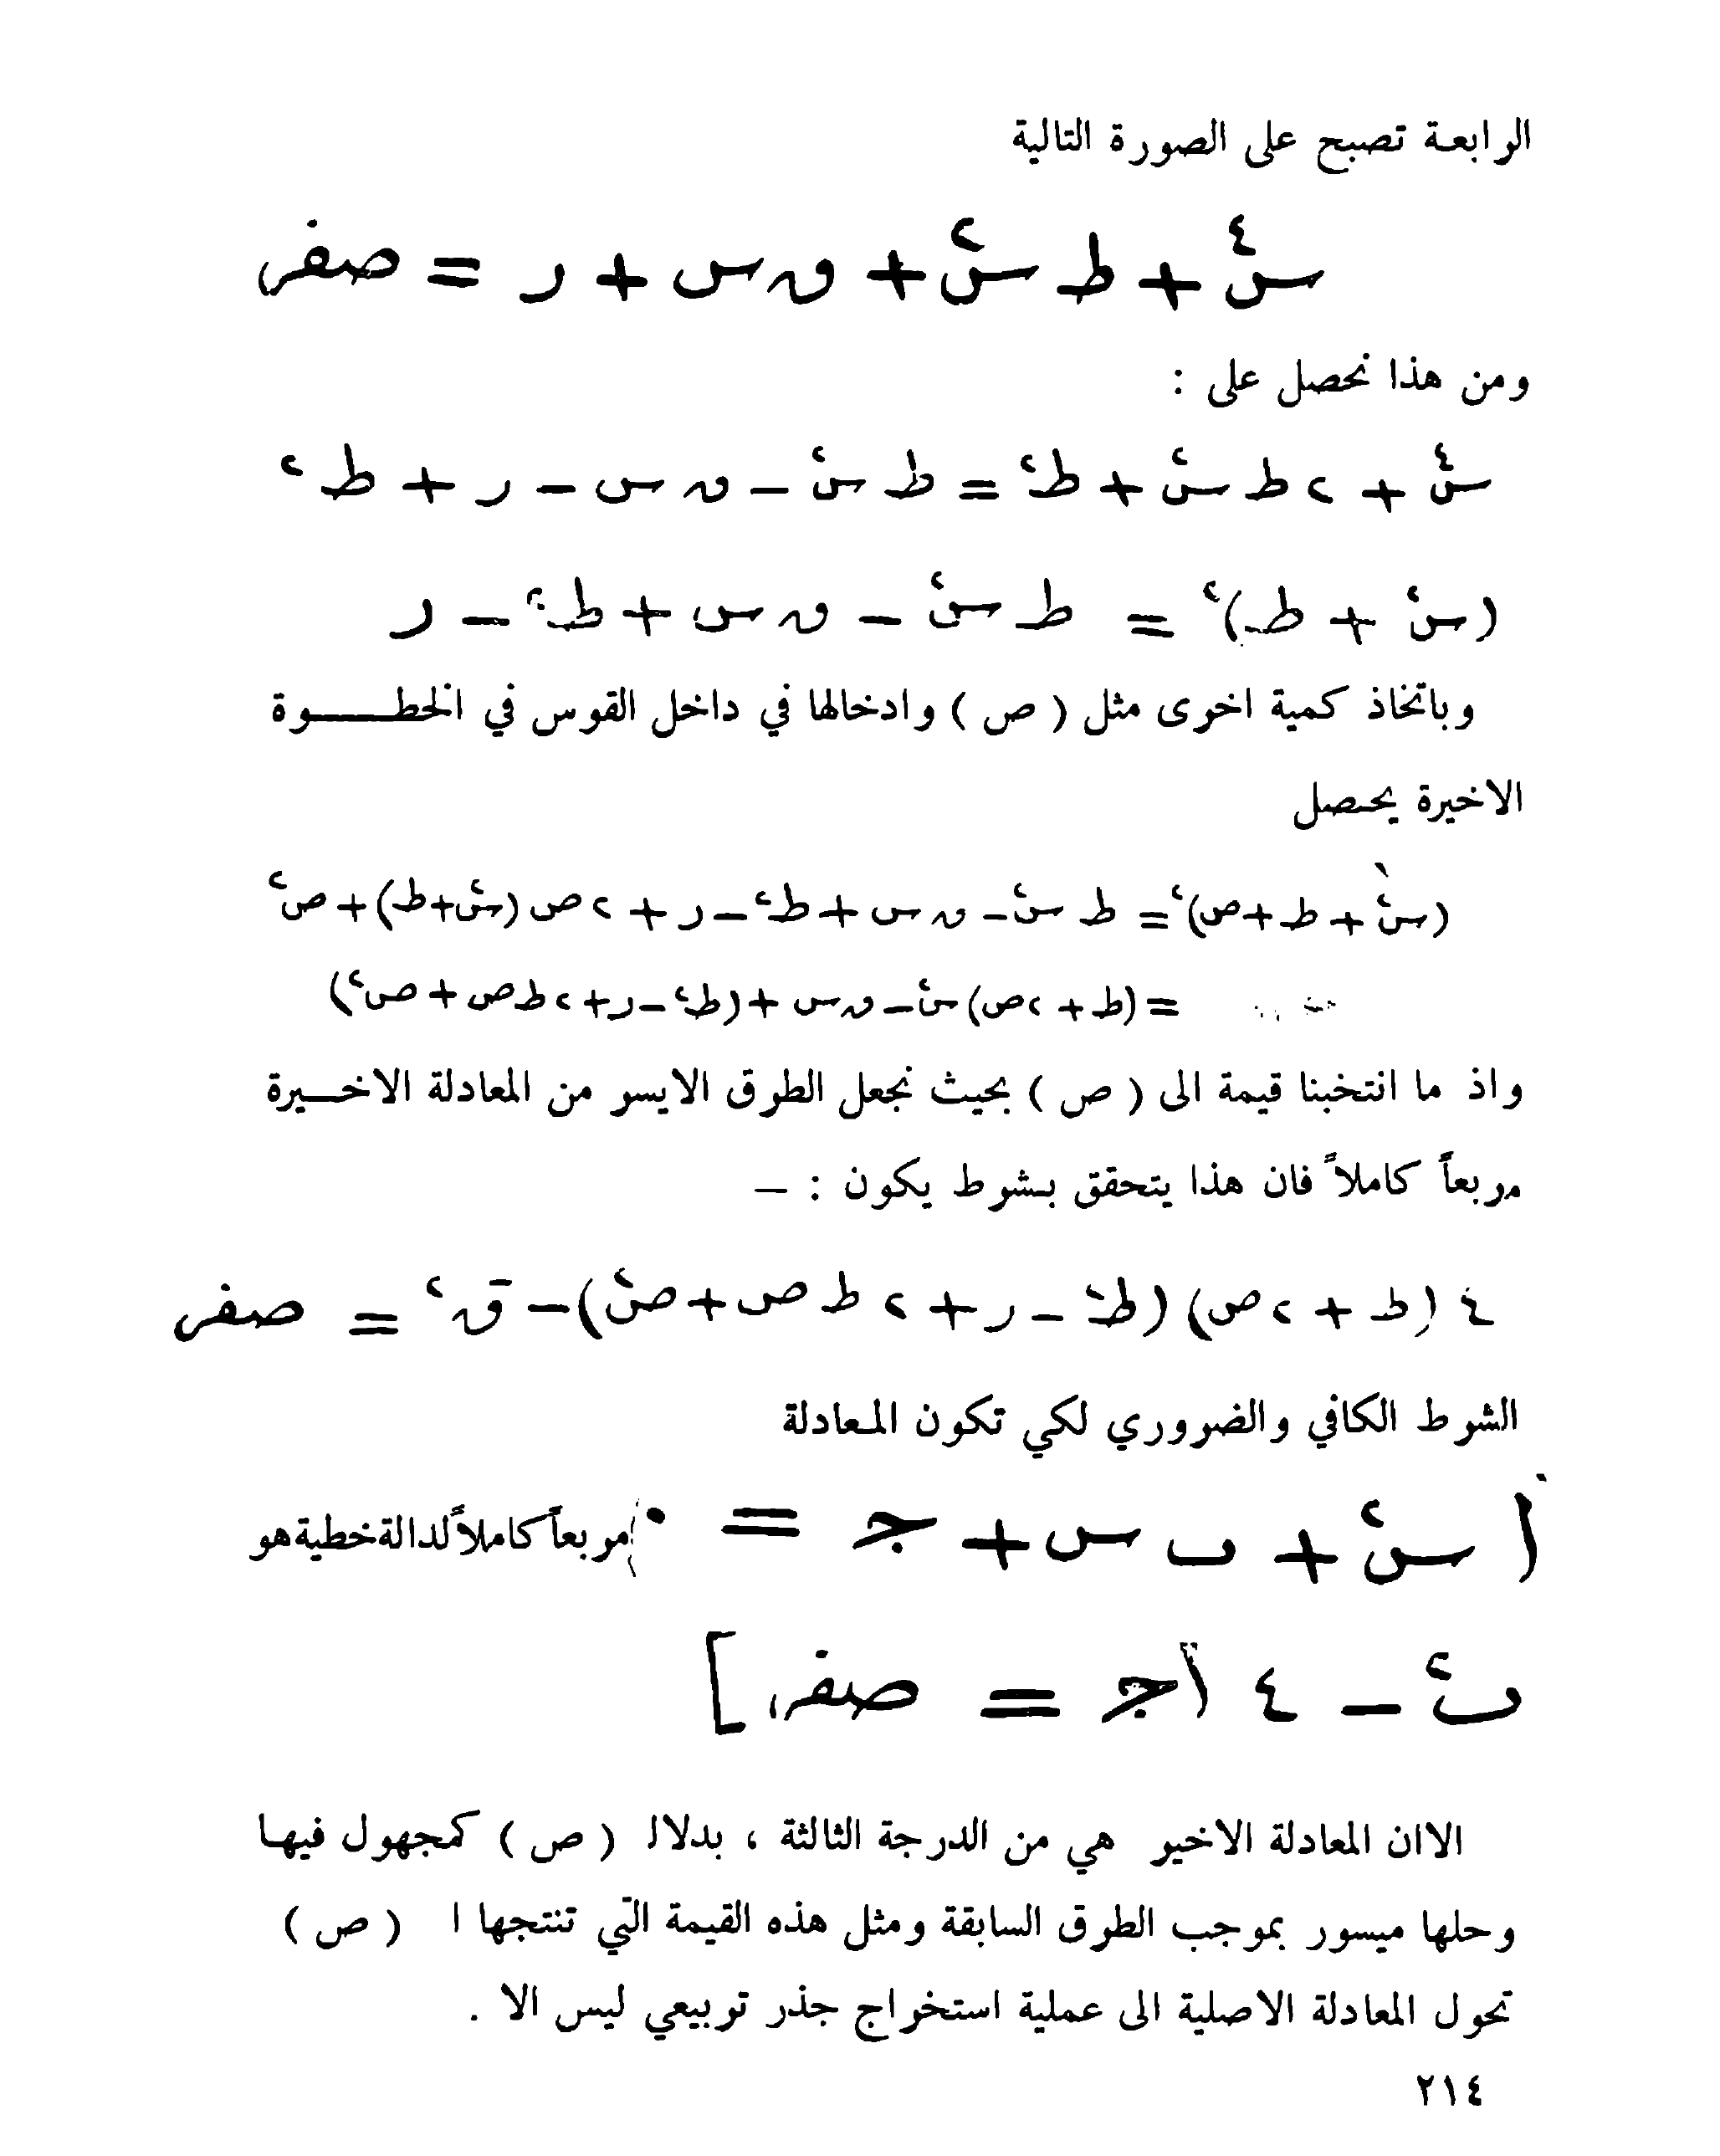 الرابعة تصبح على الصورة التالية
س⁴ + ط س² + ق س + ر = صفر
ومن هذا نحصل على :
س⁴ + ٢ ط س² + ط² = ط س² − ق س − ر + ط²
(س² + ط)² = ط س² − ق س + ط² − ر
وباتخاذ كمية اخرى مثل ( ص ) وادخالها في داخل القوس في الخطـــوة
الاخيرة يحصل
(س² + ط + ص)² = ط س² − ق س + ط² − ر + ٢ ص (س² + ط) + ص²
= (ط + ٢ ص) س² − ق س + (ط² − ر + ٢ ط ص + ص²)
واذ ما انتخبنا قيمة الى ( ص ) بحيث نجعل الطرق الايسر من المعادلة الاخـــيرة
مربعاً كاملاً فان هذا يتحقق بشرط يكون : —
٤ (ط + ٢ ص) (ط² − ر + ٢ ط ص + ص²) − ق² = صفر
الشرط الكافي والضروري لكي تكون المعادلة
( س² + ب س + جـ = ٠ مربعاً كاملاً لدالة خطية هو
ب² − ٤ ا جـ = صفر ]
الاان المعادلة الاخير هي من الدرجة الثالثة ، بدلال ( ص ) كمجهول فيها
وحلها ميسور بموجب الطرق السابقة ومثل هذه القيمة التي تنتجها ا ( ص )
تحول المعادلة الاصلية الى عملية استخراج جذر تربيعي ليس الا .
٢١٤